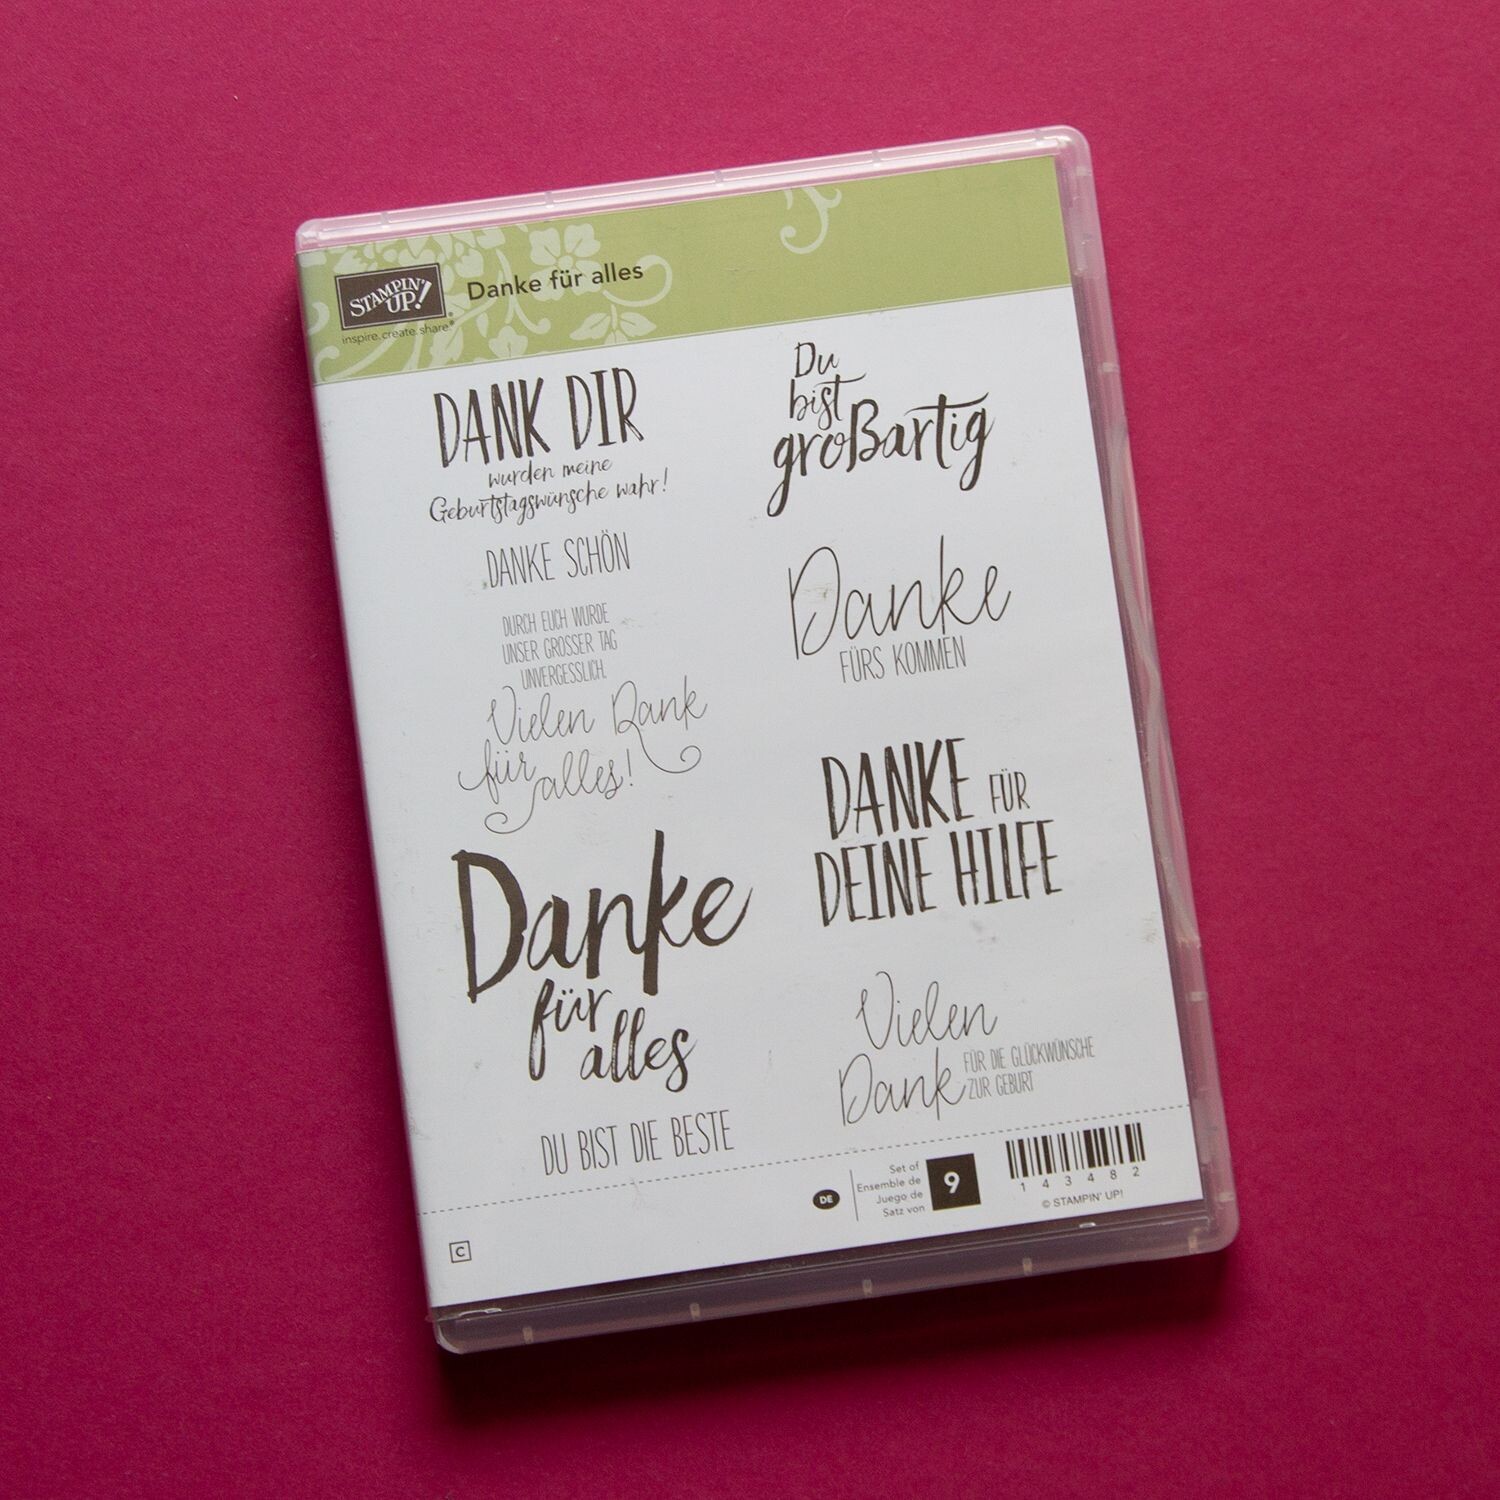 STAMPIN' UP!®
inspire. create. share.®
Danke für alles
DANK DIR
wurden meine
Geburtstagswünsche wahr!
DANKE SCHÖN
DURCH EUCH WURDE
UNSER GROSSER TAG
UNVERGESSLICH.
Vielen Dank
für alles!
Danke
für
alles
DU BIST DIE BESTE
Du
bist
großartig
Danke
FÜRS KOMMEN
DANKE FÜR
DEINE HILFE
Vielen
Dank FÜR DIE GLÜCKWÜNSCHE
ZUR GEBURT
C
DE
Set of
Ensemble de
Juego de
Satz von
9
143482
© STAMPIN' UP!